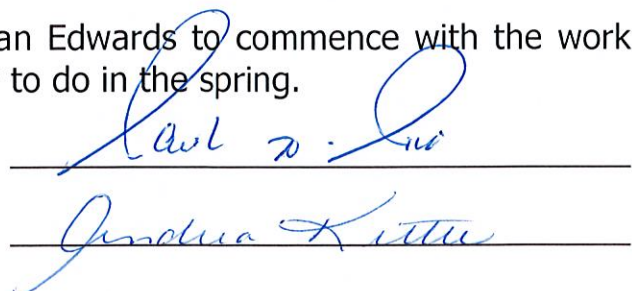 an Edwards to commence with the work
to do in the spring.
Andrea